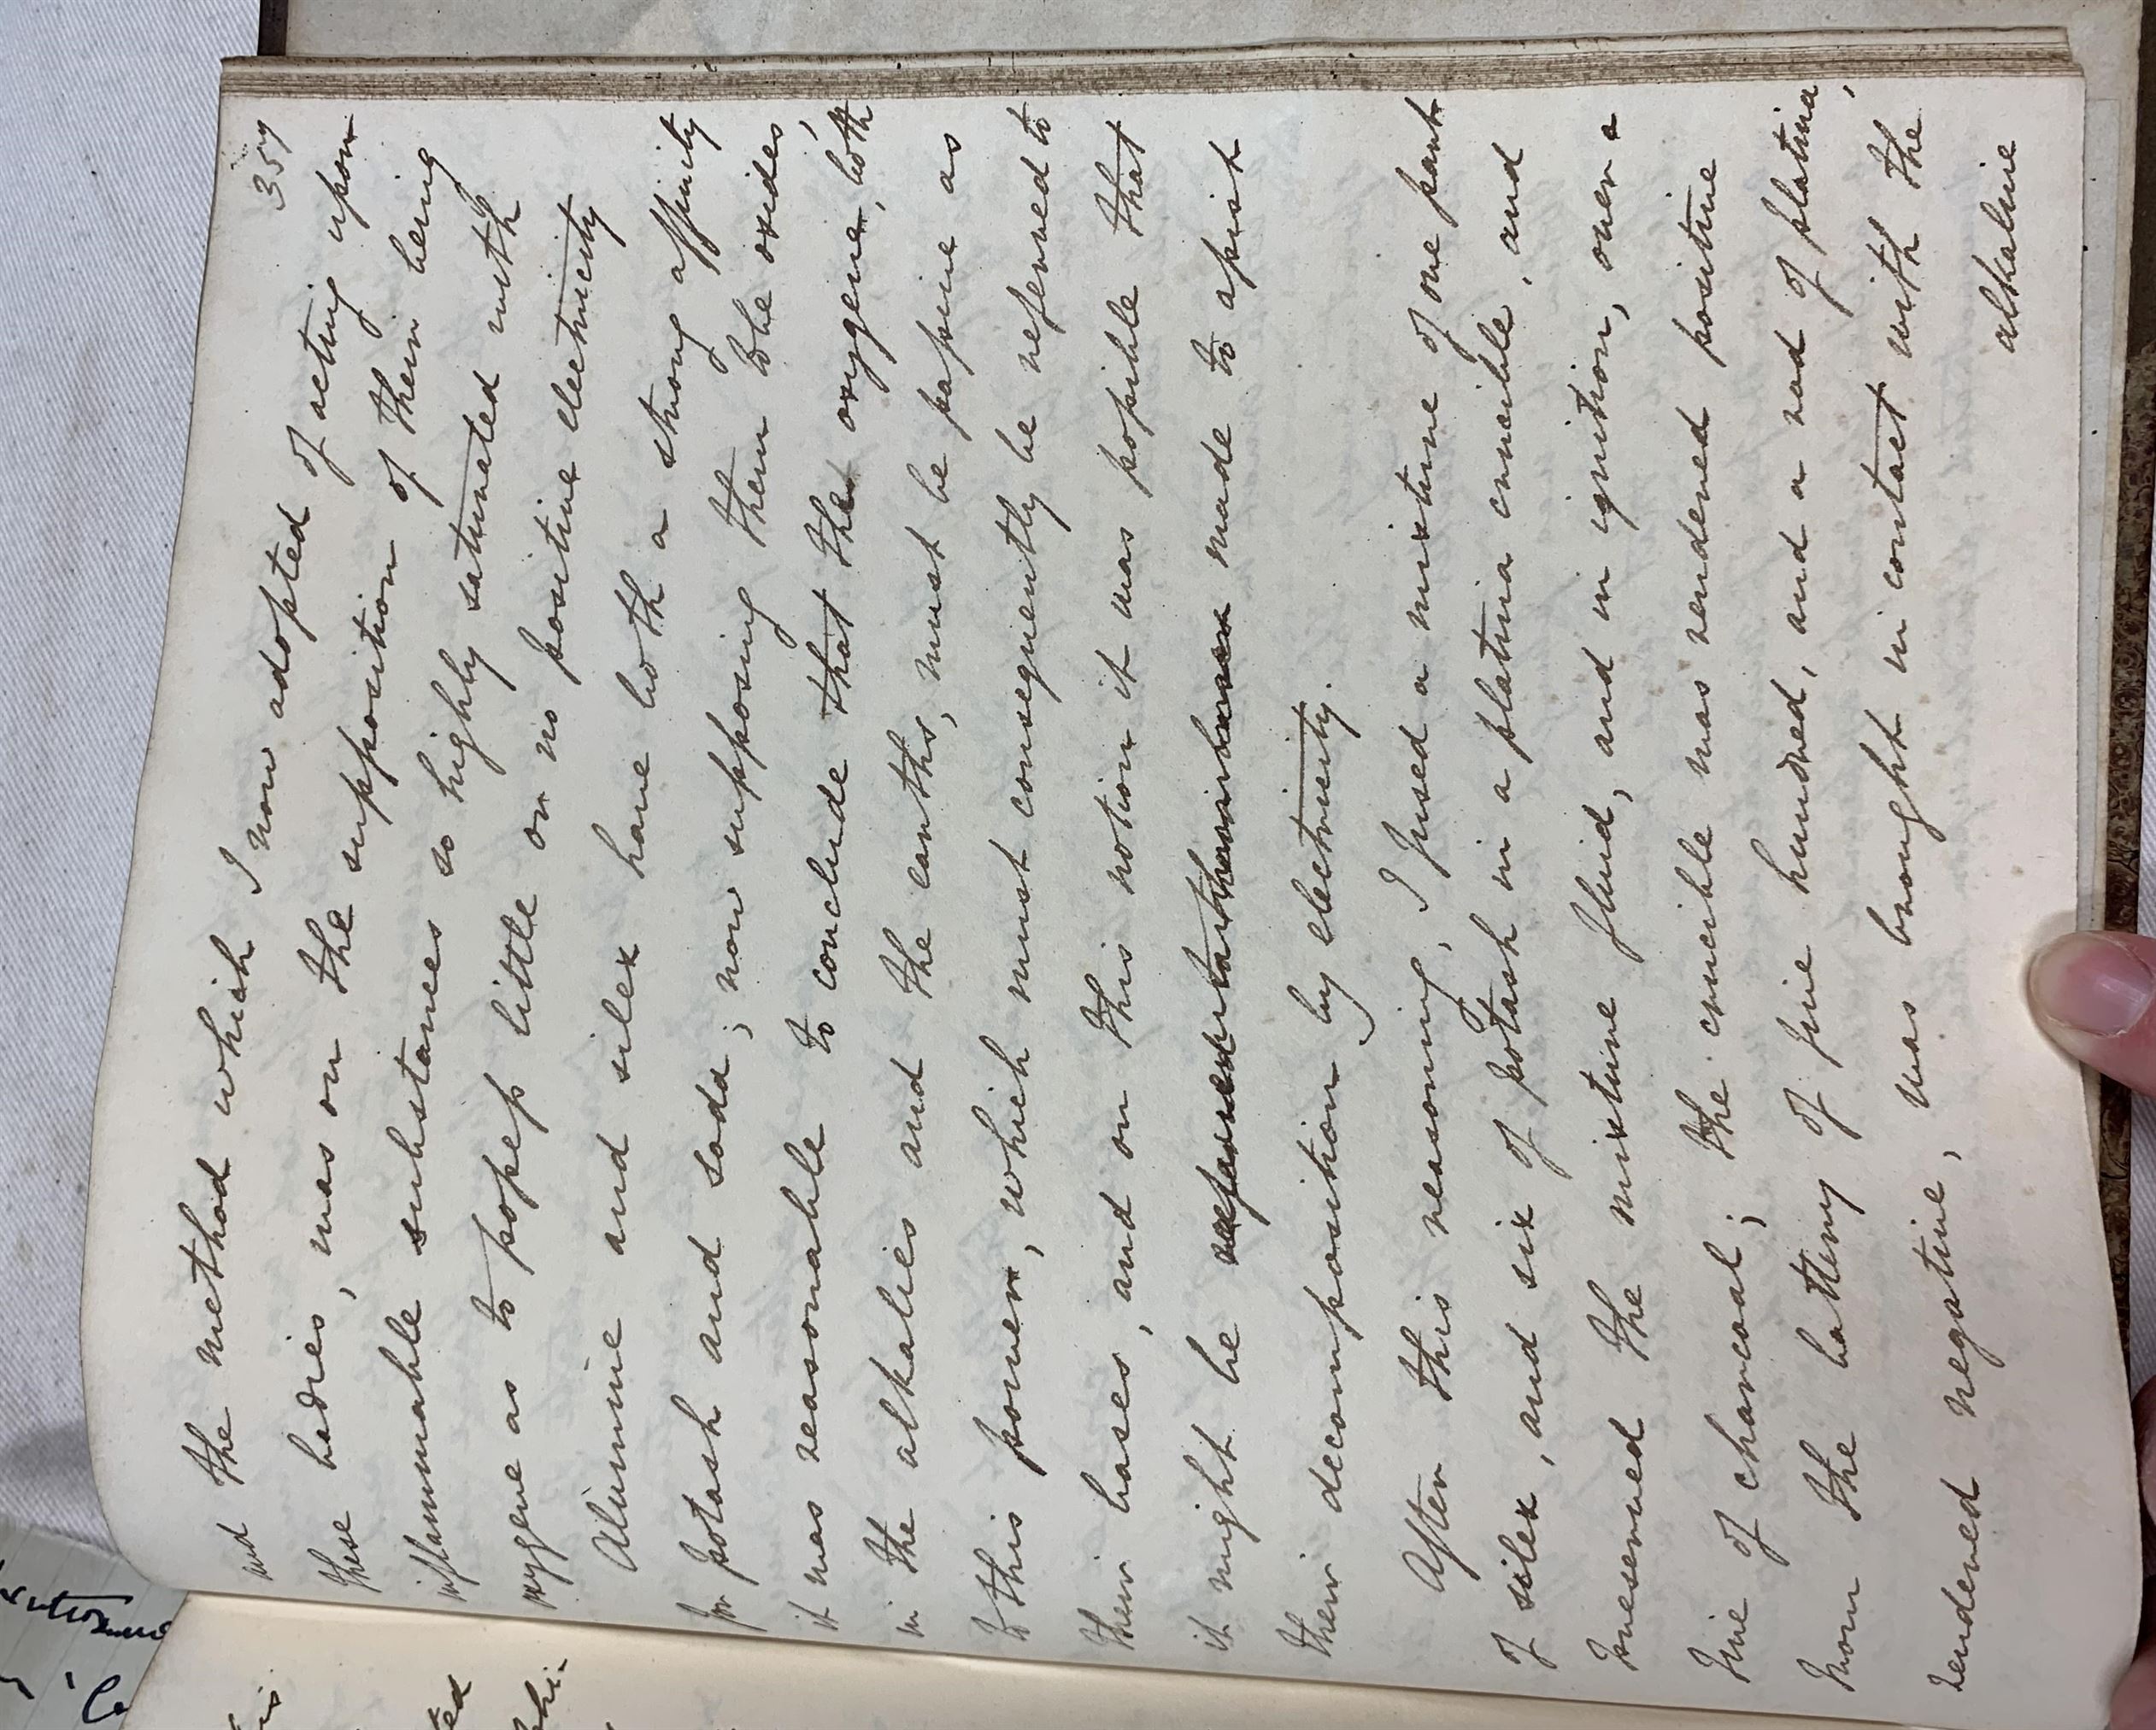 357
and the method which I now adopted of acting upon
these bodies, was on the supposition of their being
inflammable substances so highly saturated with
oxygene as to possess little or no positive electricity
Alumine and silex have both a strong affinity
for potash and soda; now supposing them to be oxides,
it was reasonable to conclude that the oxygene, both
in the alkalies and the earths, must be passive as
to this power, which must consequently be referred to
their bases, and on this notion it was possible that
it might be made to assist
their decomposition by electricity.
After this reasoning, I fused a mixture of one part
of silex, and six of potash in a platina crucible, and
preserved the mixture fluid, and in ignition, over a
fire of charcoal; the crucible was rendered positive
from the battery of five hundred, and a rod of platina,
rendered negative, was brought in contact with the
alkaline